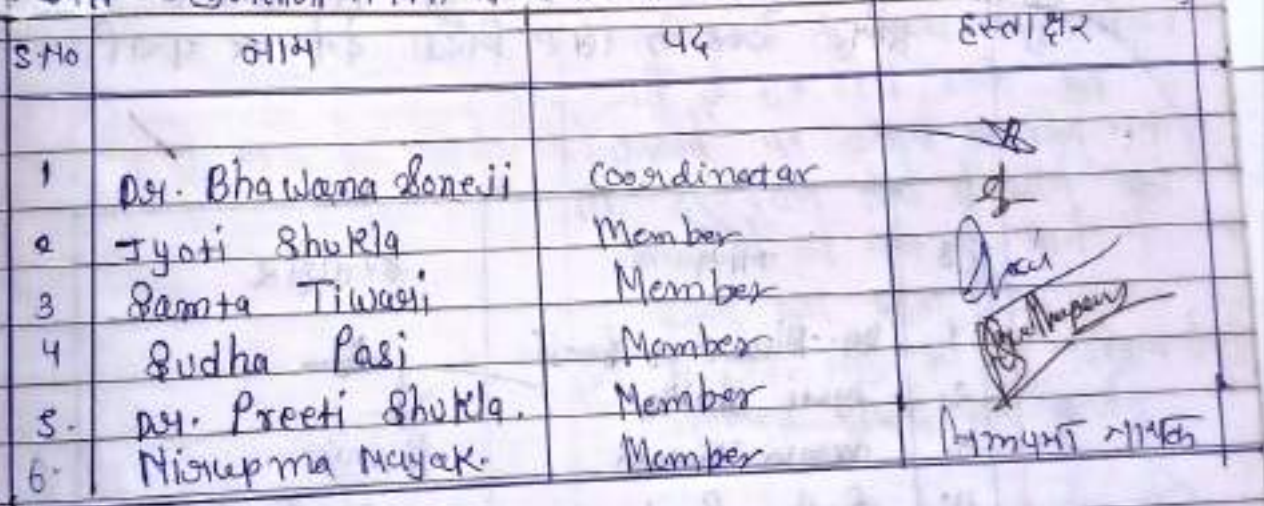 S.No नाम पद हस्ताक्षर
1 Dr. Bhawana Soneji Coordinator
2 Jyoti Shukla Member
3 Samta Tiwari Member
4 Sudha Pasi Member
5. Dr. Preeti Shukla. Member
6. Nirupma Nayak. Member निरूपमा नायक